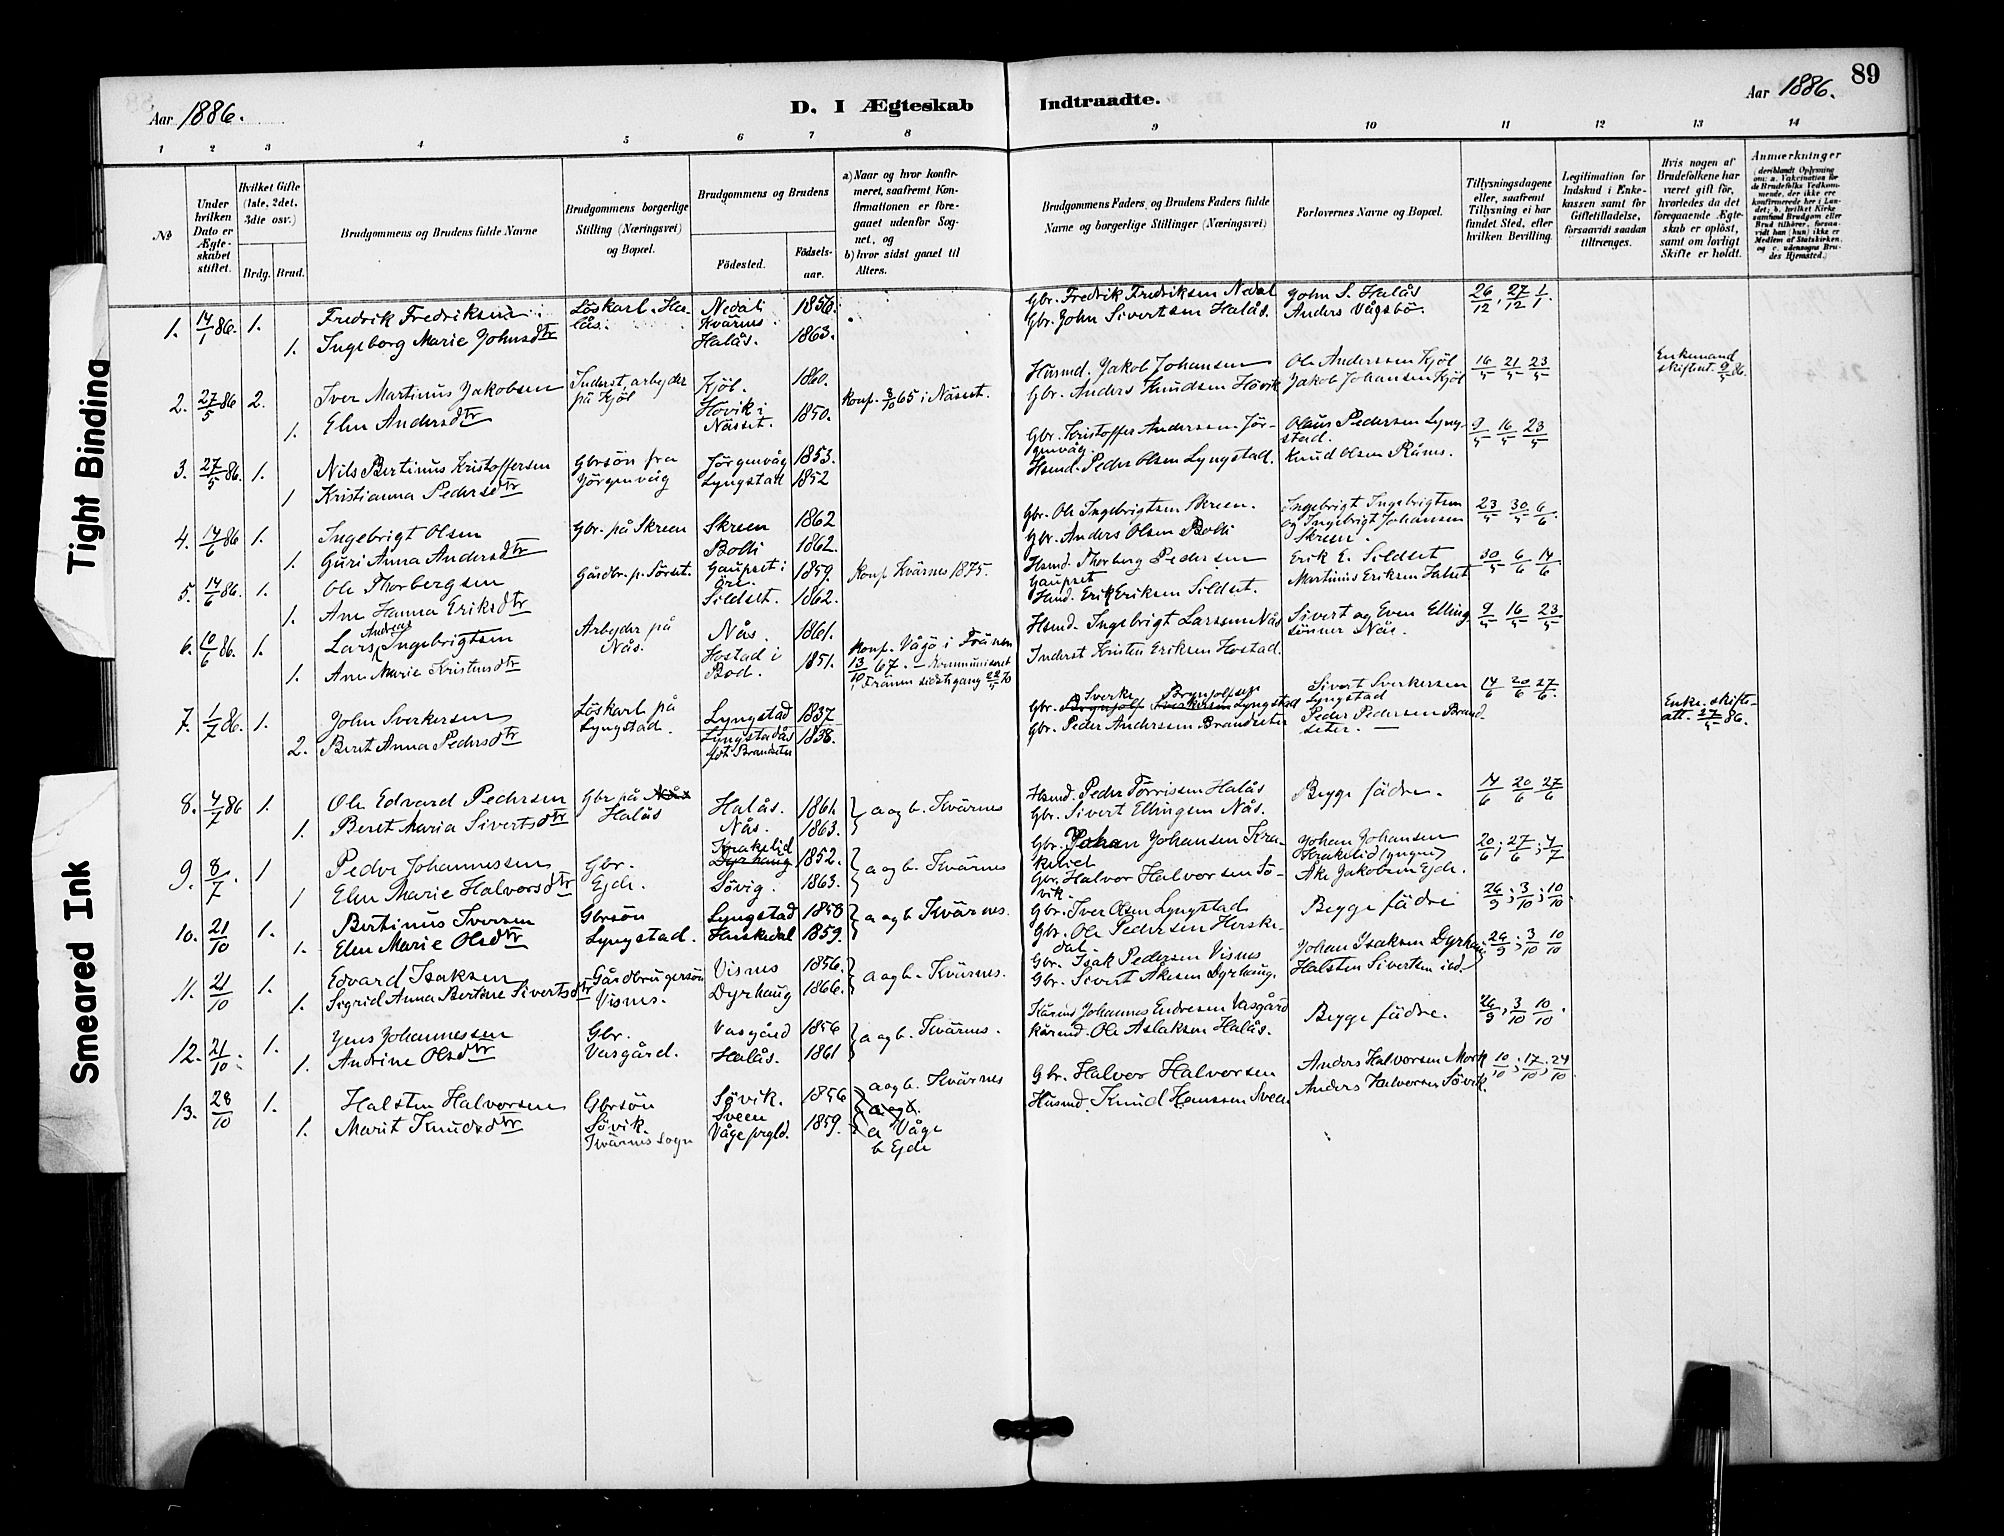 89
Aar 1886.
D. I Ægteskab Indtraadte.
Aar 1886.
1 2 3 4 5 6 7 8 9 10 11 12 13 14
№
Under hvilken Dato er Ægteskabet stiftet.
Hvilket Gifte (1ste, 2det, 3die osv.)
Brdg. Brud.
Brudgommens og Brudens fulde Navne
Brudgommens borgerlige Stilling (Næringsvei) og Bopæl.
Brudgommens og Brudens
Fødested.
Fødselsaar.
a) Naar og hvor konfirmeret, saafremt Konfirmationen er foregaaet udenfor Sognet, og
b) hvor sidst gaaet til Alters.
Brudgommens Faders og Brudens Faders fulde Navne og borgerlige Stillinger (Næringsvei)
Forlovernes Navne og Bopæl.
Tillysningsdagene eller, saafremt Tillysning ei har fundet Sted, efter hvilken Bevilling.
Legitimation for Indskud i Enkekassen samt for Giftetilladelse, forsaavidt saadan tiltrænges.
Hvis nogen af Brudefolkene har været gift før, hvorledes da det foregaaende Ægteskab er opløst, samt om lovligt Skifte er holdt.
Anmærkninger
1. 14/1 86. 1. Fredrik Fredriksen Löskarl. Halås. Nedal i Kvärnes. 1856. Gbr. Fredrik Fredriksen Nedal John S. Halås 26/12, 27/12 1/1.
1. Ingeborg Marie Johnsdtr Halås. 1863. Gbr. John Sivertsen Halås. Anders Vågsbö.
2. 27/5 86 2. Iver Martinus Jakobsen Inderst, arbejder på Kjöl Kjöl. 1860. Husmd. Jakob Johansen Ole Anderssen Kjöl 16/5 21/5 23/5 Enkemand skifteat. 9/5 86.
1. Elen Andersdtr Hovik i Nässet. 1850. Konf. 8/10 65 i Nässet. Gbr. Anders Knudsen Hovik Jakob Johansen Kjöl
3. 27/5 86. 1. Nils Bertinus Kristoffersen Gbrsön fra Jörgenvåg Jörgenvåg 1853. Gbr. Kristoffer Andersen Jörgenvåg. Olaus Pedersen Lyngstad. 9/5 16/5 23/5
1 Kristianna Pedersdtr Lyngstad 1852 Hsmd. Peder Olsen Lyngstad. Knud Olsen Rånes.
4. 14/6 86 1. Ingebrigt Olsen Gbr. på Skreen Skreen 1862 Gbr. Ole Ingebrigtsen Skreen. Ingebrigt Ingebrigtsen og Ingebrigt Johansen Skreen. 23/5 30/5 6/6.
1. Guri Anna Andersdtr Bolli 1862. Gbr. Anders Olsen Bolli
5. 14/6 86. 1. Ole Thorbergsen Gårdbr. p. Sörset. Gaupset i Öre. 1859. Konf. Kvärnes 1875. Hsmd. Thorberg Pedersen Gaupset Erik E. Sildset 30/5 6/6 14/6
1. Ane Hanna Eriksdtr Sildset. 1862. Hsmd. Erik Eriksen Sildset. Martinus Eriksen Halset
6. 10/6 86. 1. Lars Andreas Ingebrigtsen Arbejder på Nås. Nås. 1861. Hsmd. Ingebrigt Larssen Nås Sivert og Even Ellingsönner Nås. 9/5 16/5 23/5
1. Ane Marie Kristensdtr Hostad i Bod. 1851. Konf. Vågö i Fränen 13/10 67. Inderst Kristen Eriksen Hostad.
7. 1/7 86. 1. John Sverkersen Löskarl på Lyngstad. Lyngstad 1837 Gbr. Sverke Brynjolfsen Lyngstad Sivert Sverkersen Lyngstad 14/6 20/6 27/6. Enke. skifteatt. 27/5 86.
2. Beret Anna Pedersdtr Lyngstadås föt Brandseter 1838. Gbr. Peder Andersen Brandseter Peder Pedersen Brandseter.
8. 4/7 86 1. Ole Edvard Pedersen Gbr på Nås Halås Halås. 1861. } a og b. Kvärnes Hsmd. Peder Törrissen Halås Begge fädre. 14/6 20/6 27/6
1. Beret Maria Sivertsdtr Nås. 1863. Gbr. Sivert Ellingsen Nås.
9. 8/7. 1 Peder Johannessen Gbr. Ejde. Krakelid Dyrhaug 1852. } a og b. Kvärnes Gbr. Johan Johansen Krakeliet Johan Johansen Krakelid (yngre) 20/6; 27/6; 4/7
1 Elen Marie Halvorsdtr Sövig. 1863. Gbr. Halvor Halvorsen Sövik. Åke Jakobsen Ejde.
10. 21/10 1. Bertinus Iversen Gbrsön Lyngstad. Lyngstad 1858 } a og b. Kvärnes. Gbr. Iver Olsen Lyngstad Begge fädre 26/9; 3/10; 10/10.
1. Elen Marie Olsdtr Herskedal 1859. Gbr. Ole Pedersen Herskedal
11. 21/10 1. Edvard Isaksen Gårdbrugersön Visnes. Visnes 1856. } a og b. Kvärnes. Gbr. Isak Pedersen Visnes Johan Isaksen Dyrhaug 26/9; 3/10 10/10
1. Sigrid Anna Bertine Sivertsdtr Dyrhaug 1866. Gbr. Sivert Åkesen Dyrhaug. Halsten Sivertsen ibd.
12. 21/10. 1. Jens Johannessen Gbr. Vasgård. Vasgård 1856 } a og b. Kvärnes. Kårmd. Johannes Endresen Vasgård Begge fädre. 26/9, 3/10 10/10.
1. Andrine Olsdtr Halås. 1861 Kårmd. Ole Aslaksen Halås.
13. 28/10 1. Halsten Halvorsen Gbrsön Sövik. Kvärnes sogn Sövik. 1856 a og b. Kvärnes Gbr. Halvor Halvorsen Anders Halvorsen Mork 10/10; 17/10; 24/10
1. Marit Knudsdtr Sveen Våge prgld. 1859. a Våge b Ejde Husmd. Knud Hanssen Sveen Anders Halvorsen Sövik
Tight Binding
Smeared Ink